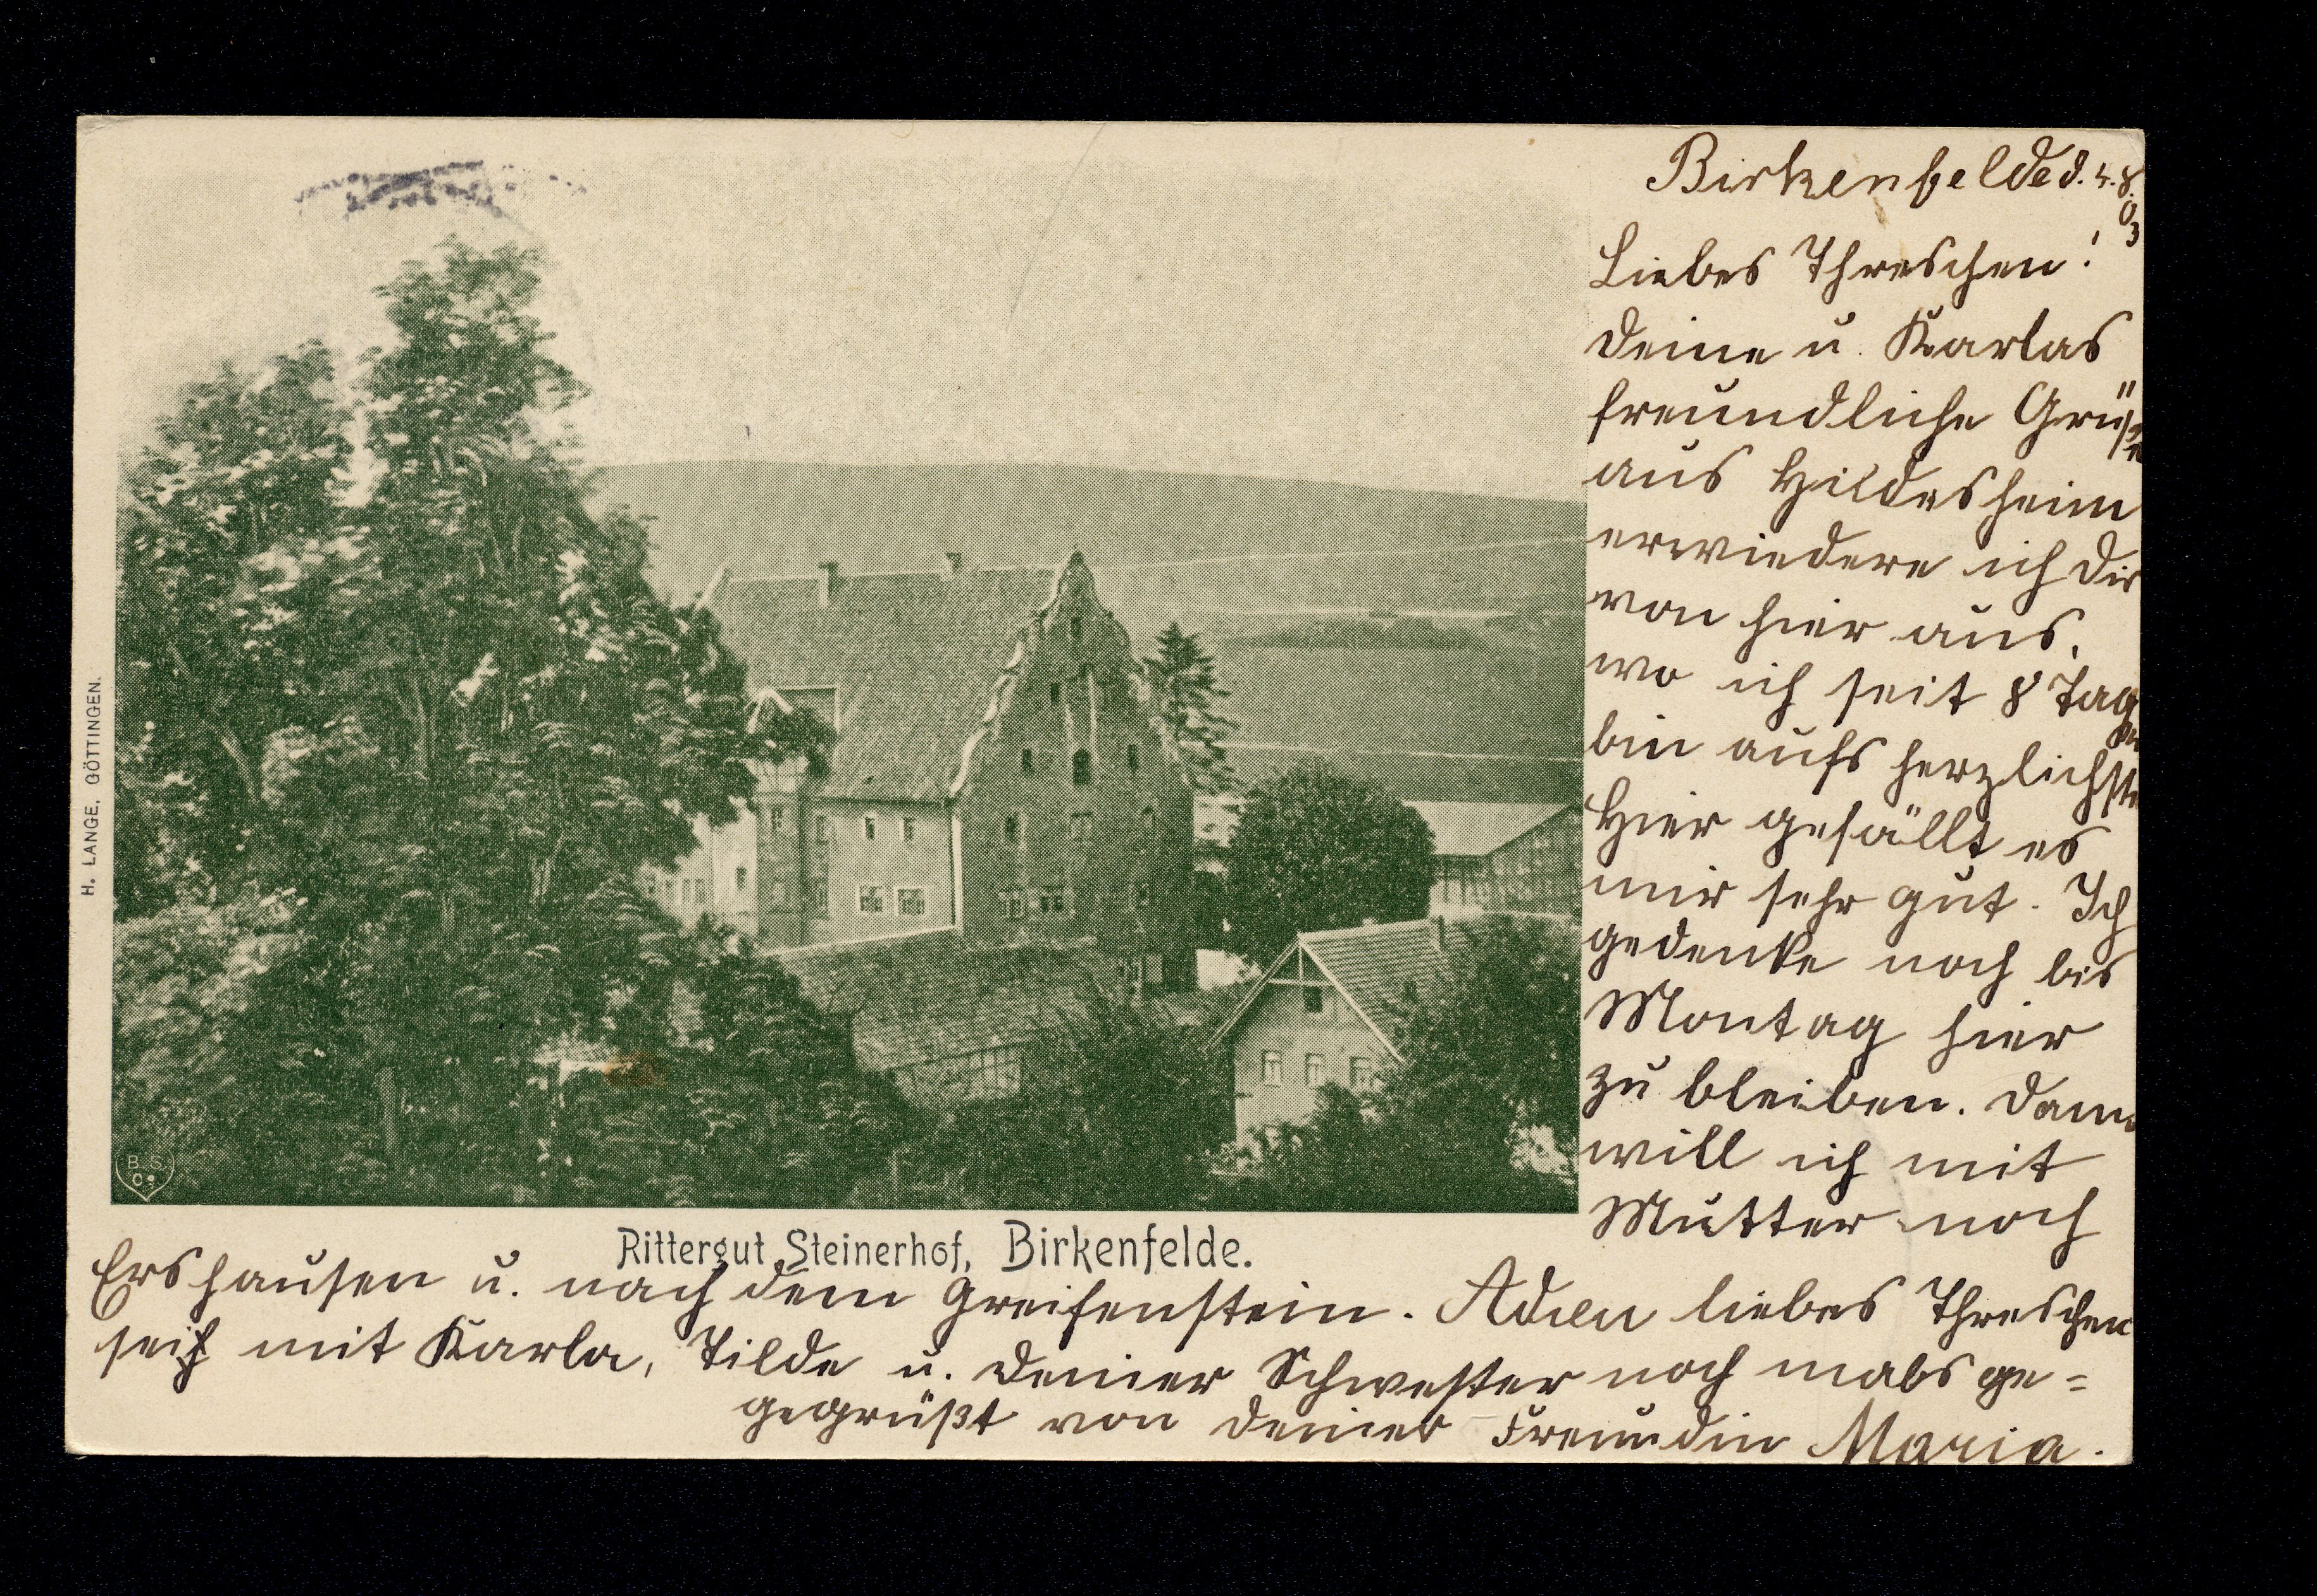 Birkenfelde d. 4. 8. 03
Liebes Threschen!
Deine u. Karlas
freundliche Grüße
aus Hildesheim
erwiedere ich Dir
von hier aus,
wo ich seit 8 Tagen
bin aufs herzlichste
Hier gefällt es
mir sehr gut. Ich
gedenke noch bis
Montag hier
zu bleiben. Dann
will ich mit
Mutter noch
Ershausen u. nach dem Greifenstein. Adieu liebes Threschen
sei mit Karla, Tilde u. Deiner Schwester noch mals ge=
gegrüßt von Deiner Freundin Maria.
Rittergut Steinerhof, Birkenfelde.
H. LANGE, GÖTTINGEN.
B. S.